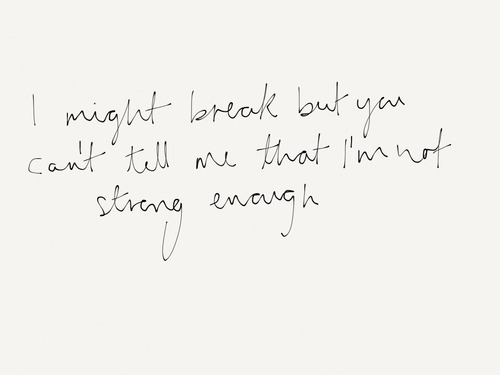 I might break but you
can't tell me that I'm not
strong enough